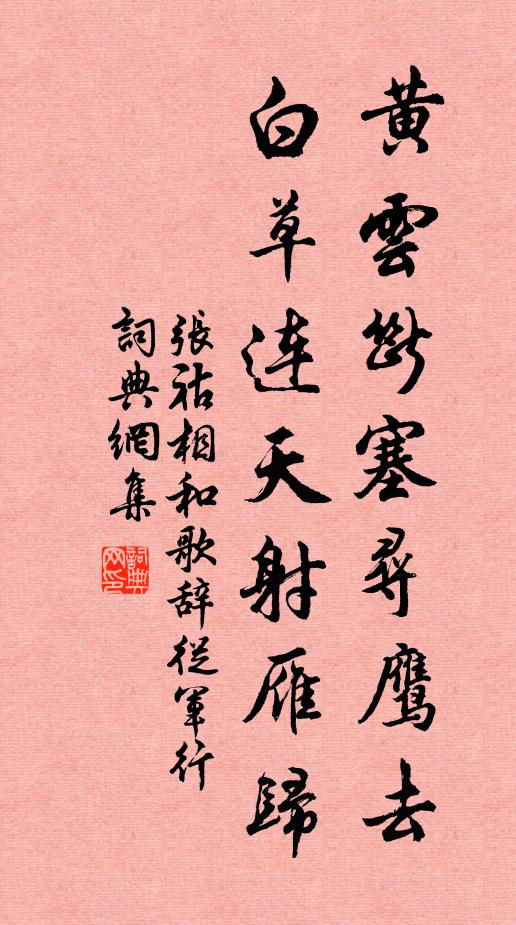 黃雲斷塞尋鷹去
白草連天射雁歸
張祜相和歌辭從軍行
詞典網集
詞典
网印